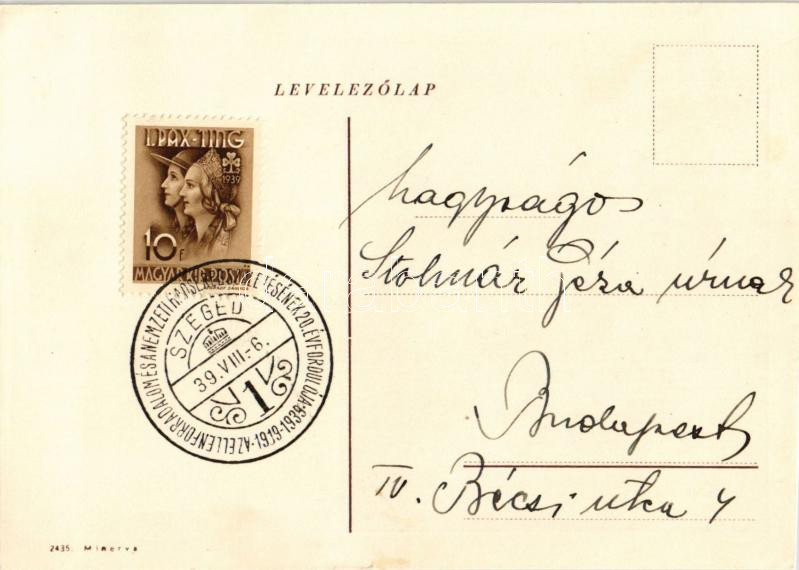 LEVELEZŐLAP
I. PAX-TING
1939
10 F
MAGYAR KIR. POSTA
AZ ELLENFORRADALOM ÉS A NEMZETI HADSEREG SZÜLETÉSÉNEK 20. ÉVFORDULÓJA · 1919-1939 ·
SZEGED
39.VIII.-6.
1
Nagyságos
Stolmár Géza úrnak
Budapest
IV. Bécsi utca 4
2435. Minerva